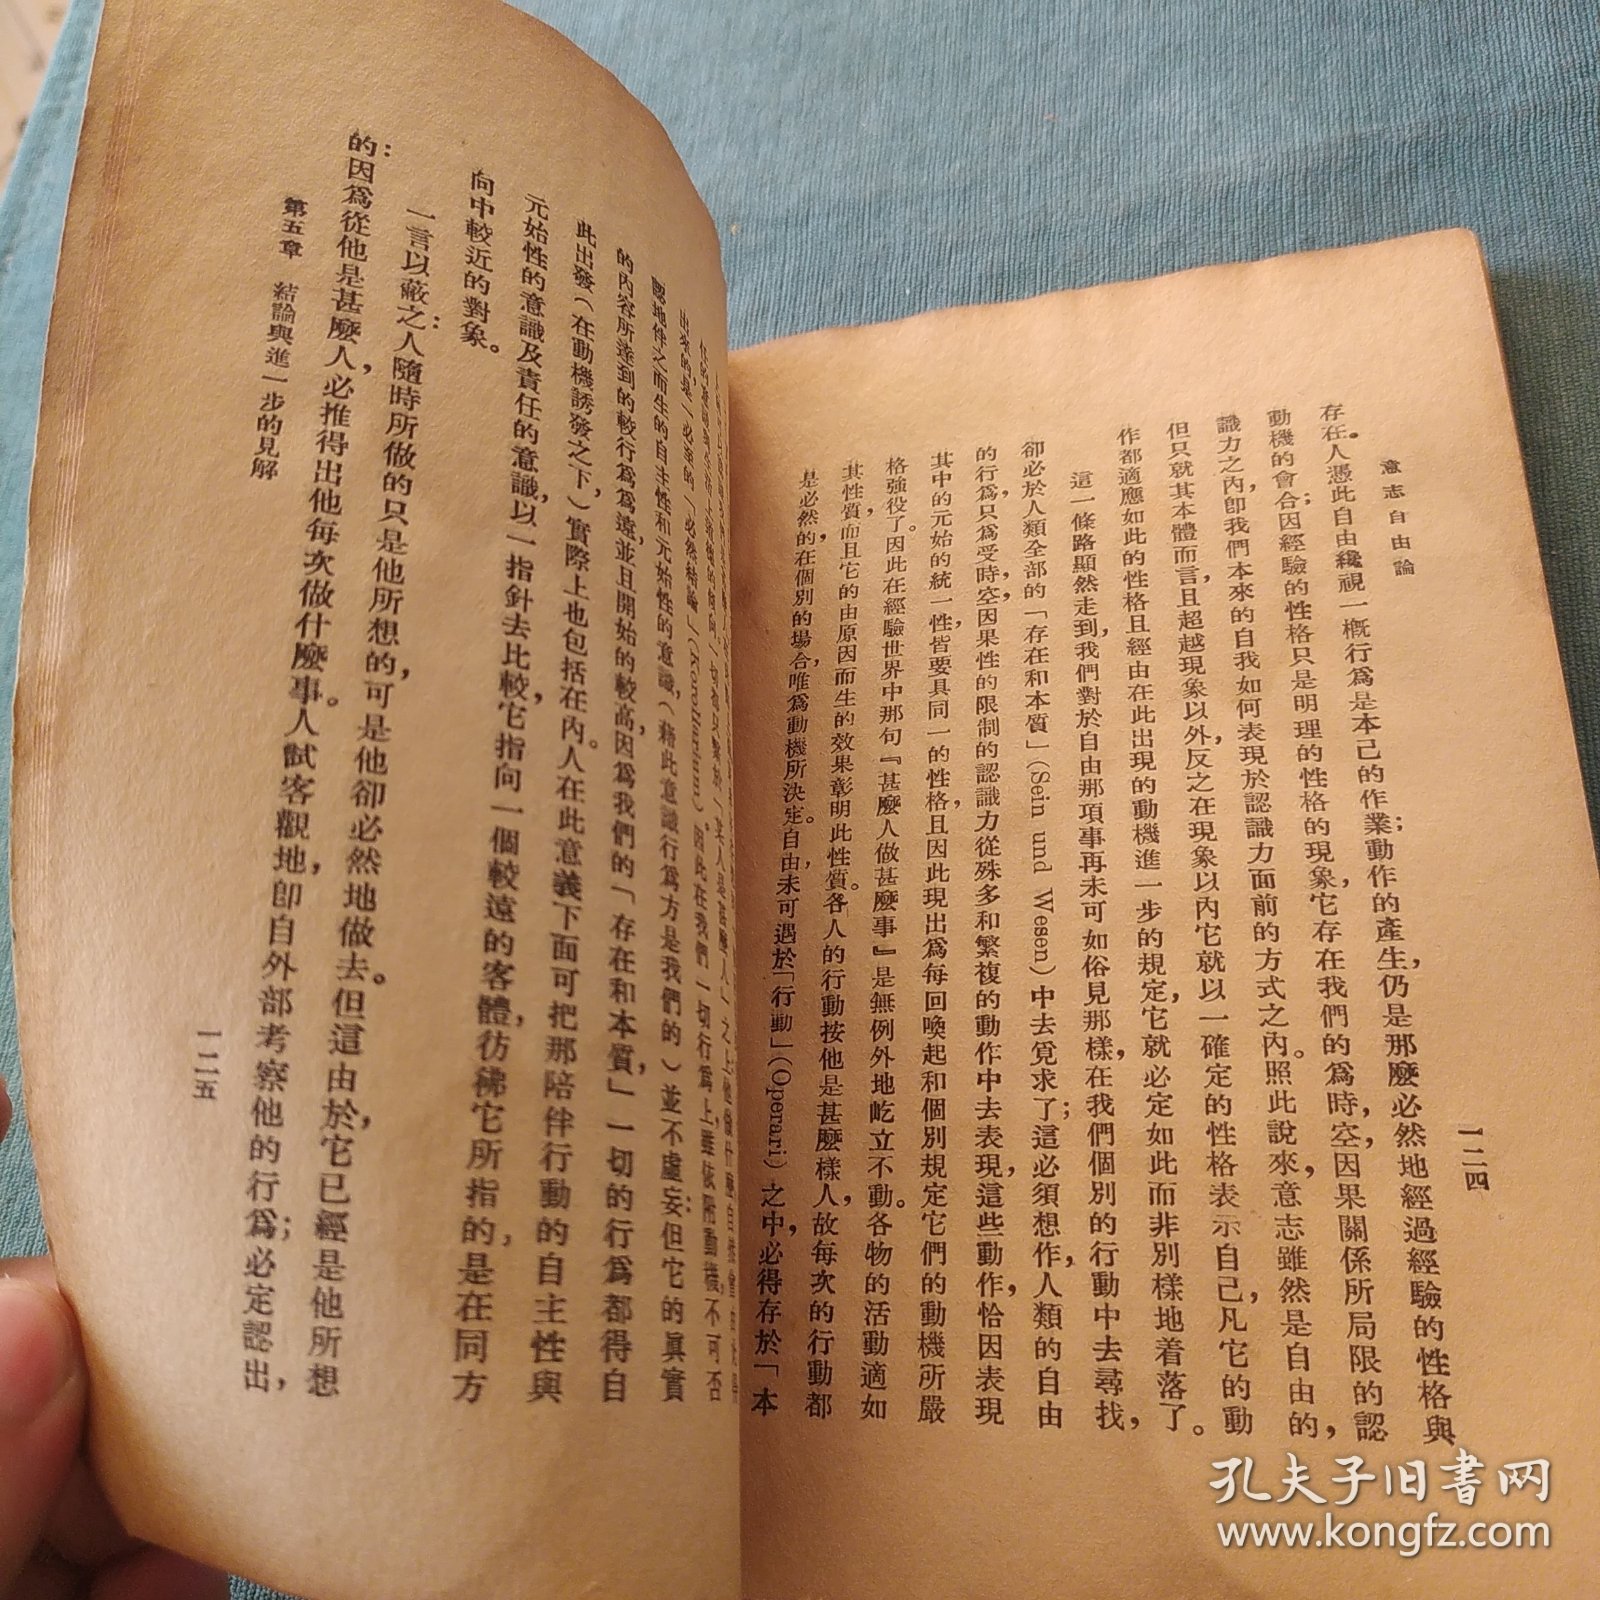 意志自由論
一二四
存在。人憑此自由纔視一概行爲是本己的作業；動作的產生，仍是那麼必然地經過經驗的性格與
動機的會合；因經驗的性格只是明理的性格的現象，它存在我們的爲時，空，因果關係所局限的認
識力之內，卽我們本來的自我如何表現於認識力面前的方式之內。照此說來，意志雖然是自由的，
但只就其本體而言，且超越現象以外，反之在現象以內它就以一確定的性格表示自己，凡它的動
作都適應如此的性格且經由在此出現的動機進一步的規定，它就必定如此而非別樣地着落了。
這一條路顯然走到，我們對於自由那項事再未可如俗見那樣，在我們個別的行動中去尋找，
卻必於人類全部的「存在和本質」(Sein und Wesen)中去覓求了；這必須想作，人類的自由
的行爲，只爲受時，空，因果性的限制的認識力從殊多和繁複的動作中去表現，這些動作，恰因表現
其中的元始的統一性皆要具同一的性格，且因此現出爲每回喚起和個別規定它們的動機所嚴
格強役了。因此在經驗世界中那句『甚麼人做甚麼事』是無例外地屹立不動。各物的活動適如
其性質，而且它的由原因而生的效果彰明此性質。各人的行動按他是甚麼樣人，故每次的行動都
是必然的，在個別的場合，唯爲動機所決定。自由未可遇於「行動」(Operari)之中，必得存於「本
出來的，是「必然結論」(Korollarium)。因此在我們一切行爲上，雖依附動機，不可否
認地伴之而生的自主性和元始性的意識，（藉此意識行爲方是我們的）並不虛妄；但它的眞實
的內容所達到的較行爲爲遠，並且開始的較高，因爲我們的「存在和本質，」一切的行爲都得自
此出發（在動機誘發之下，）實際上也包括在內。人在此意義下面可把那陪伴行動的自主性與
元始性的意識及責任的意識，以一指針去比較，它指向一個較遠的客體，彷彿它所指的，是在同方
向中較近的對象。
一言以蔽之：人隨時所做的只是他所想的，可是他卻必然地做去。但這由於，它已經是他所想
的：因爲從他是甚麼人，必推得出他每次做什麼事。人試客觀地，卽自外部考察他的行爲；必定認出，
第五章　結論與進一步的見解
一二五
孔夫子旧书网
www.kongfz.com